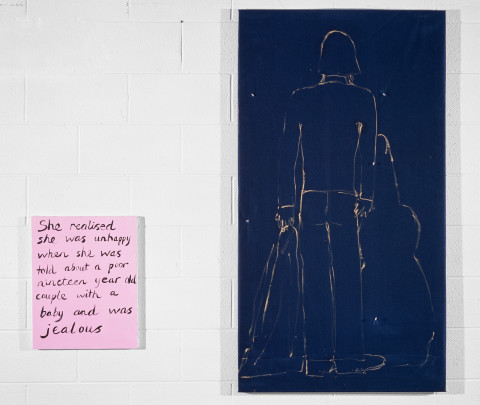 She realised
she was unhappy
when she was
told about a poor
nineteen year old
couple with a
baby and was
jealous